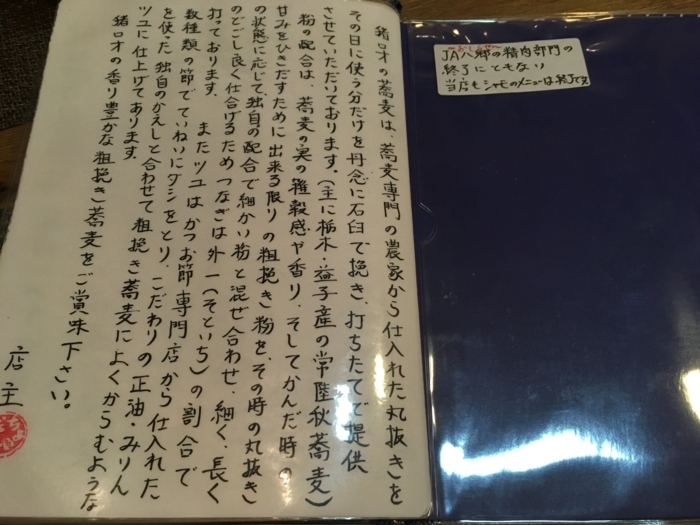 猪口才の蕎麦は、蕎麦専門の農家から仕入れた丸抜きを
その日に使う分だけを丹念に石臼で挽き、打ちたてで提供
させていただいております。(主に栃木・益子産の常陸秋蕎麦)
粉の配合は、蕎麦の実の雑穀感や香り、そしてかんだ時の
甘みをひきだすために出来る限りの粗挽き粉を、その時の丸抜き
の状態に応じて独自の配合で細かい粉と混ぜ合わせ、細く、長く
のどごし良く仕合げるためつなぎは外一(そといち)の割合で
打っております。 またツユはかつお節専門店から仕入れた
数種類の節でていねいにダシをとり、こだわりの正油・みりん
を使た独自のかえしと合わせて粗挽き蕎麦によくからむような
ツユに仕上げてあります。
猪口才の香り豊かな粗挽き蕎麦をご賞味下さい。
店主
JA八郷の精肉部門の
終了にともない
当店もシャモのメニューは終了です